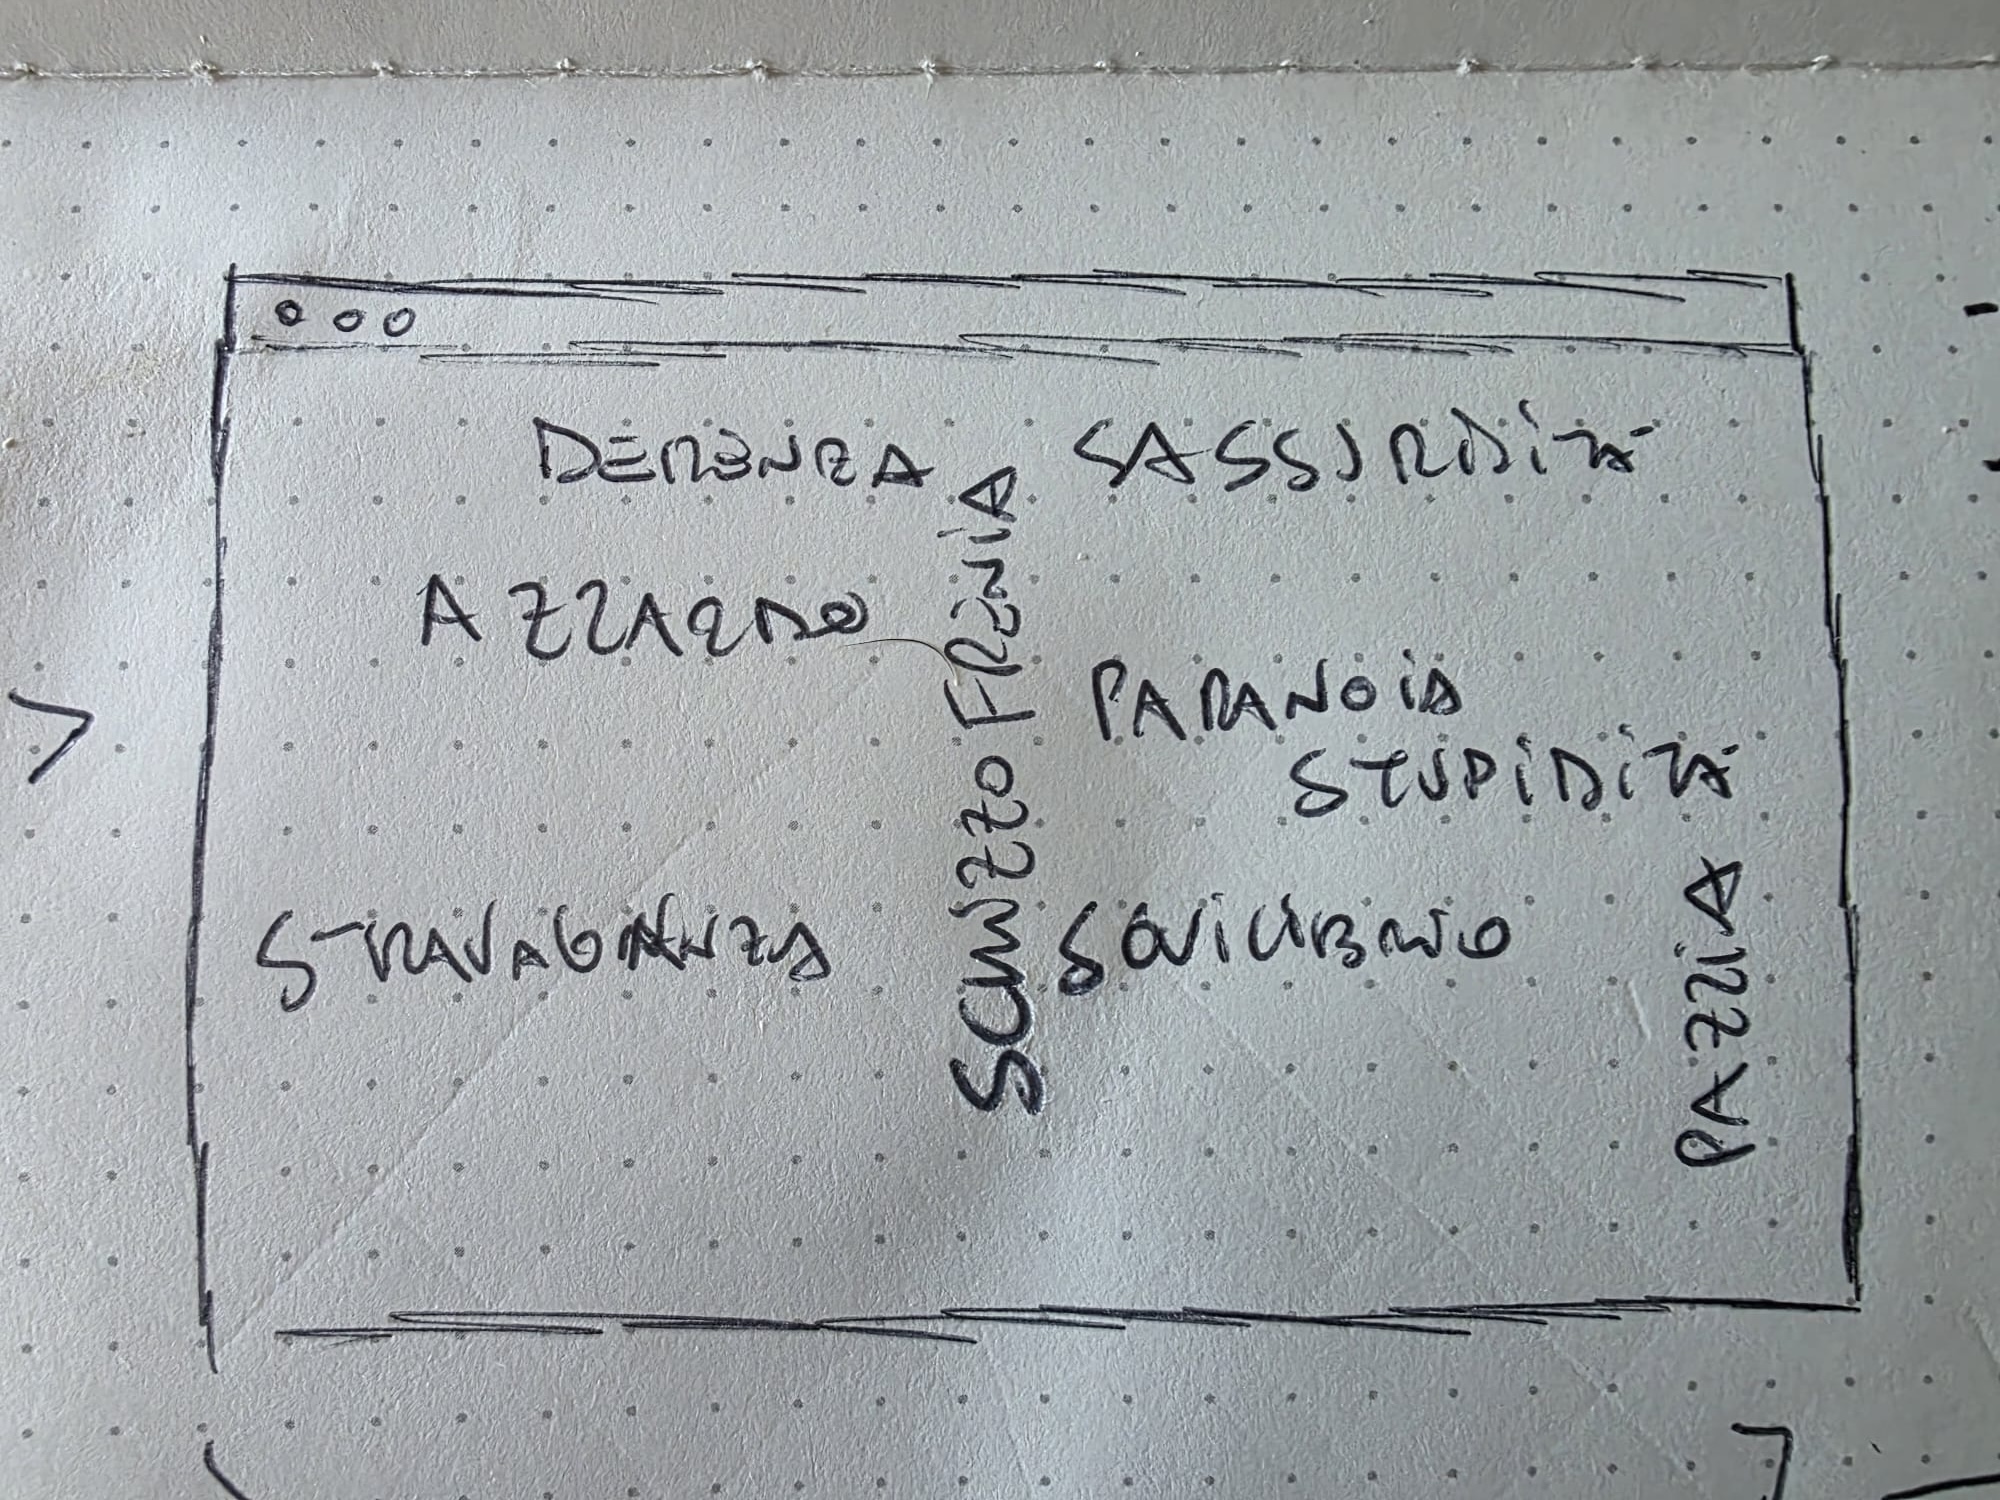 DEMENZA
SASSURDITÀ
AZZARDO
SCHIZZOFRENIA
PARANOIA
STUPIDITÀ
STRAVAGANZA
SQUILIBRIO
PAZZIA